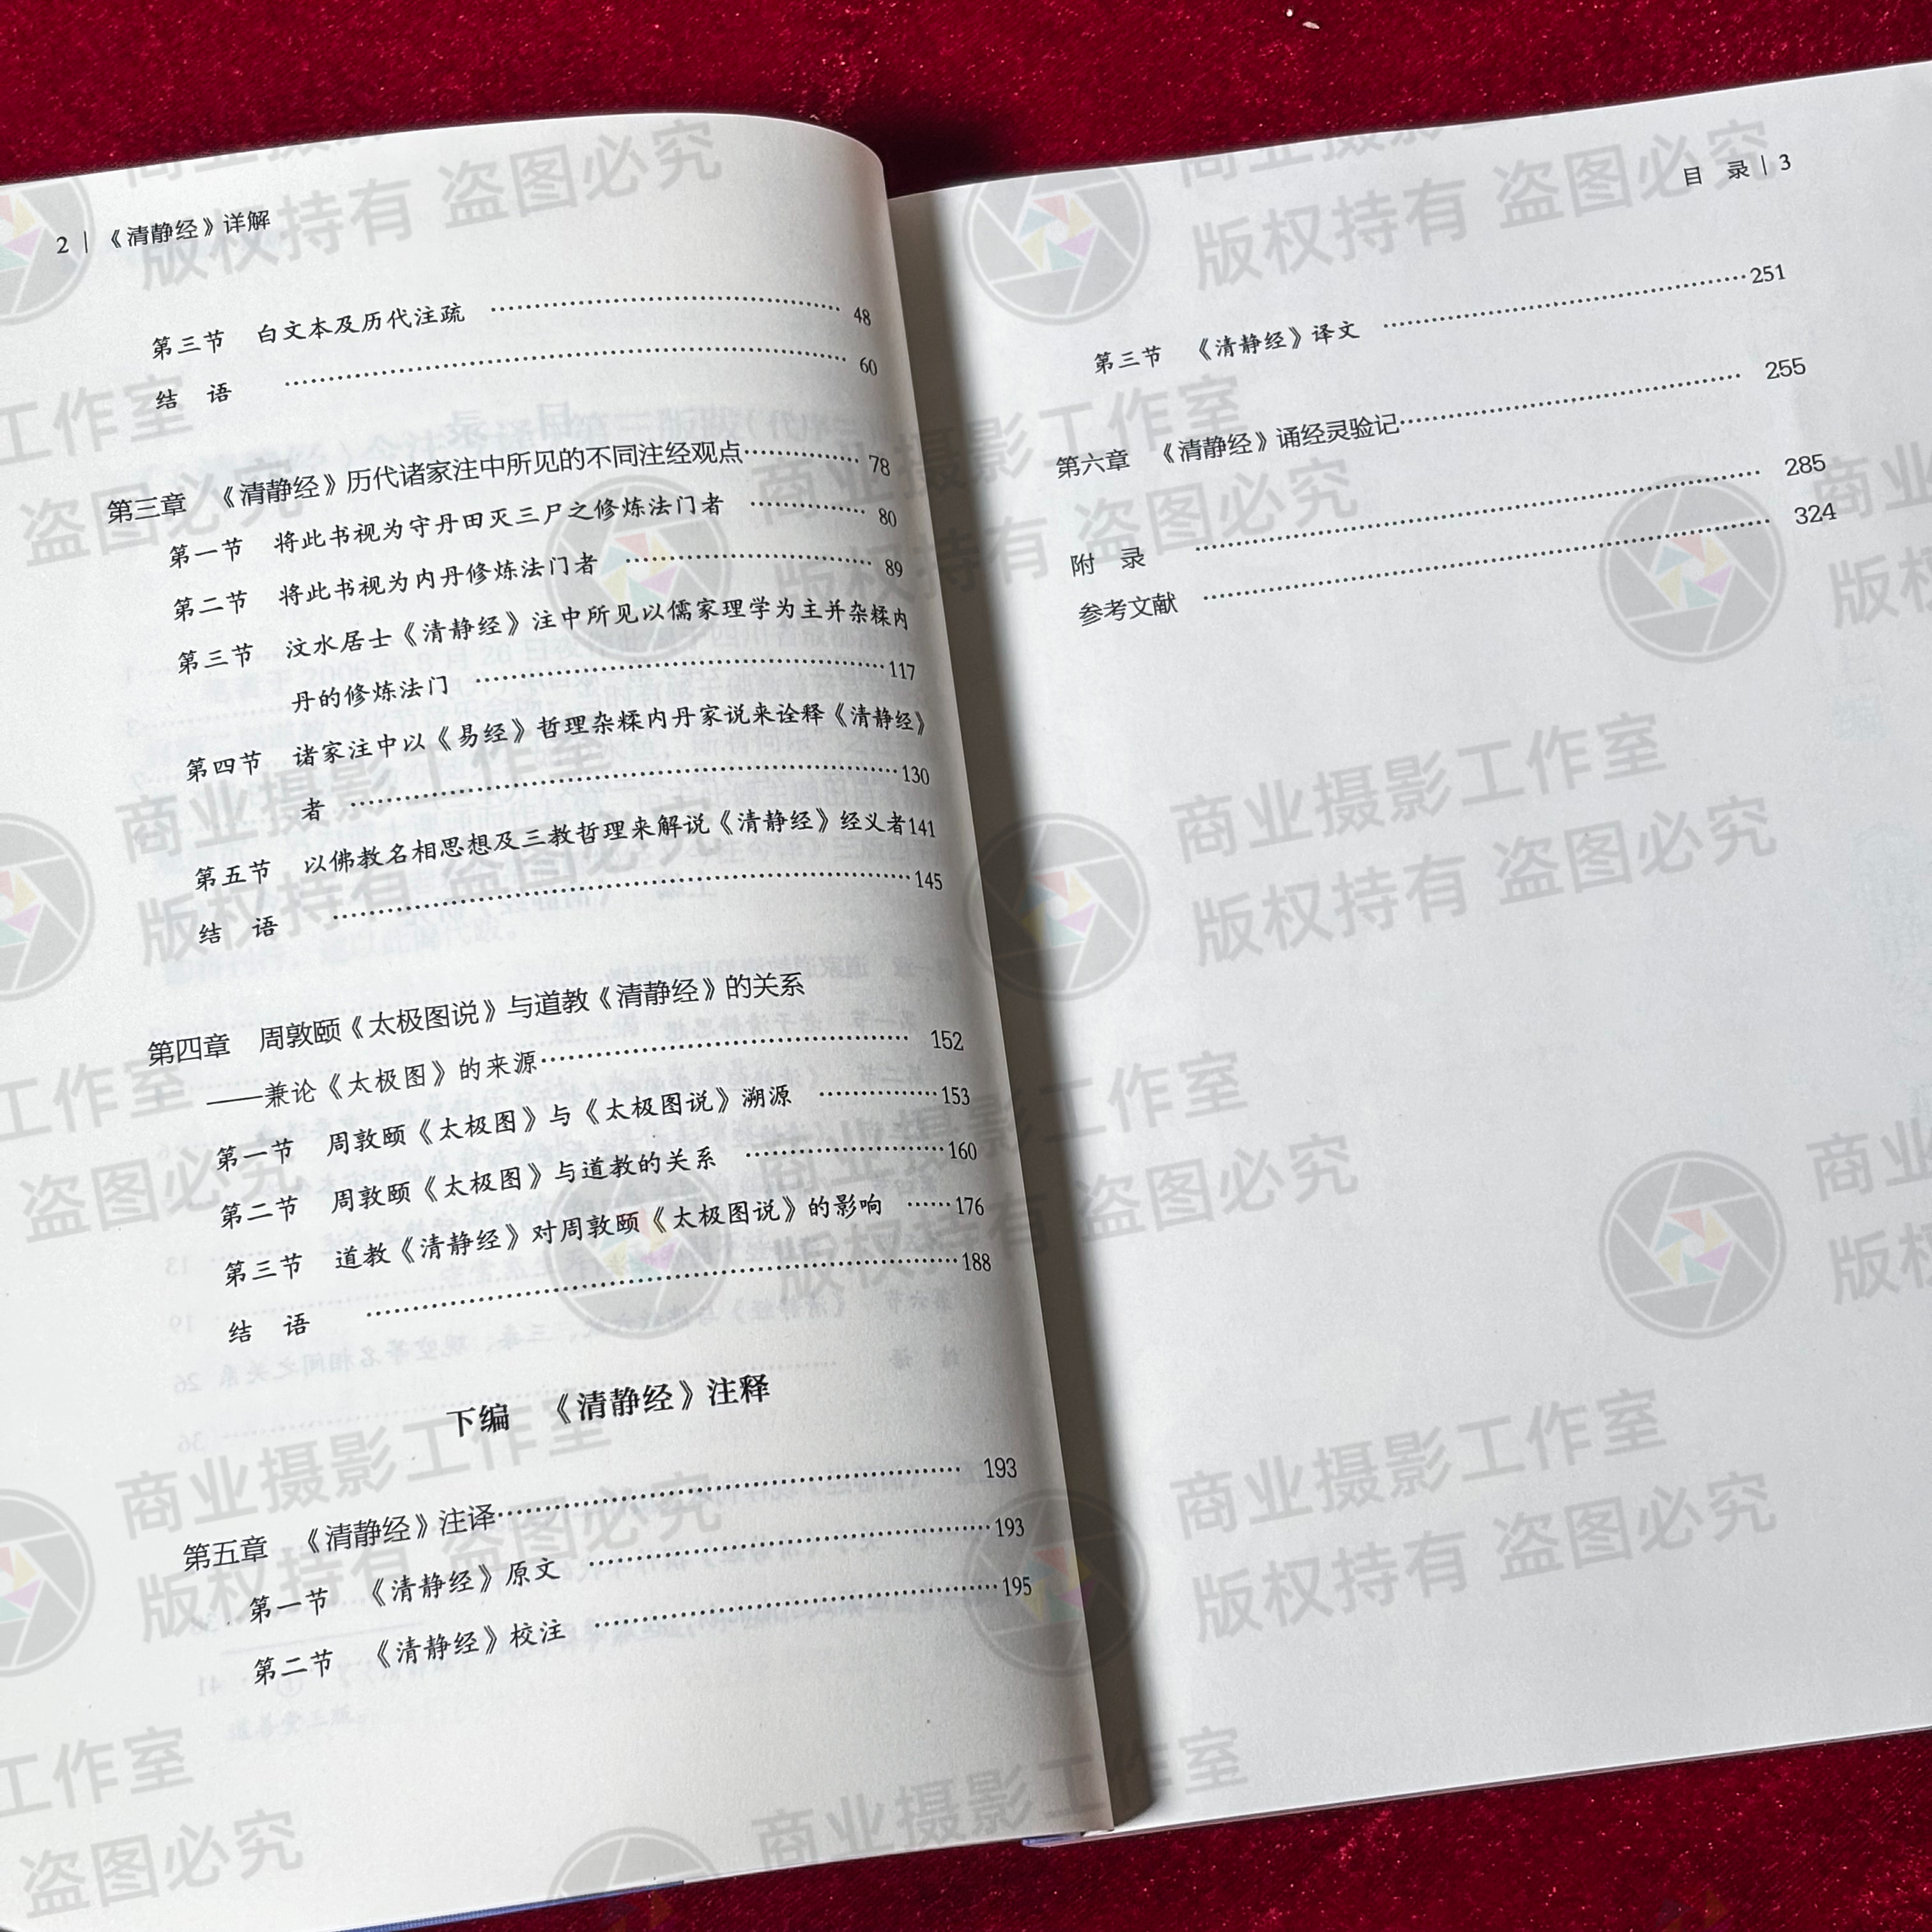 2 | 《清静经》详解
第三节 白文本及历代注疏 …… 48
结 语 …… 60
第三章 《清静经》历代诸家注中所见的不同注经观点 …… 78
第一节 将此书视为守丹田灭三尸之修炼法门者 …… 80
第二节 将此书视为内丹修炼法门者 …… 89
第三节 汶水居士《清静经》注中所见以儒家理学为主并杂糅内
丹的修炼法门 …… 117
第四节 诸家注中以《易经》哲理杂糅内丹家说来诠释《清静经》
者 …… 130
第五节 以佛教名相思想及三教哲理来解说《清静经》经义者141
结 语 …… 145
第四章 周敦颐《太极图说》与道教《清静经》的关系
——兼论《太极图》的来源 …… 152
第一节 周敦颐《太极图》与《太极图说》溯源 …… 153
第二节 周敦颐《太极图》与道教的关系 …… 160
第三节 道教《清静经》对周敦颐《太极图说》的影响 …… 176
结 语 …… 188
下编 《清静经》注释
第五章 《清静经》注译 …… 193
第一节 《清静经》原文 …… 193
第二节 《清静经》校注 …… 195
目 录 | 3
第三节 《清静经》译文 …… 251
第六章 《清静经》诵经灵验记 …… 255
附 录 …… 285
参考文献 …… 324
商业摄影工作室
版权持有 盗图必究